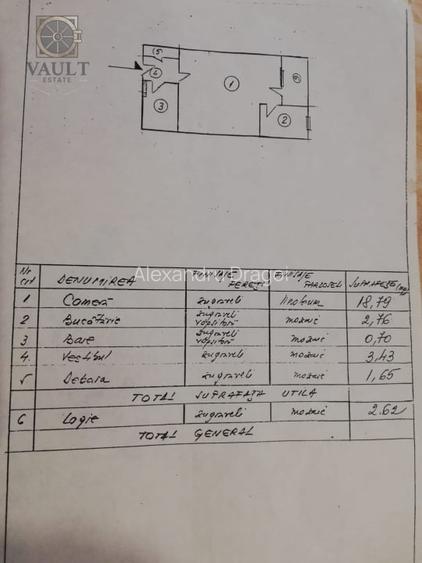 VAULT
ESTATE
5
4
1
6
3
2
Alexandru Dragan
Nr crt DENUMIREA FINISAJE PEREȚI FINISAJE PARDOSELI SUPRAFEȚE (mp)
1 Cameră zugrăveli linoleum 18,79
2 Bucătărie zugrăveli vopsitorii mozaic 2,76
3 Baie zugrăveli vopsitorii mozaic 0,70
4. Vestibul zugrăveli mozaic 3,43
5 Debara zugrăveli mozaic 1,65
TOTAL SUPRAFAȚA UTILA
6 Logie zugrăveli mozaic 2.62
TOTAL GENERAL